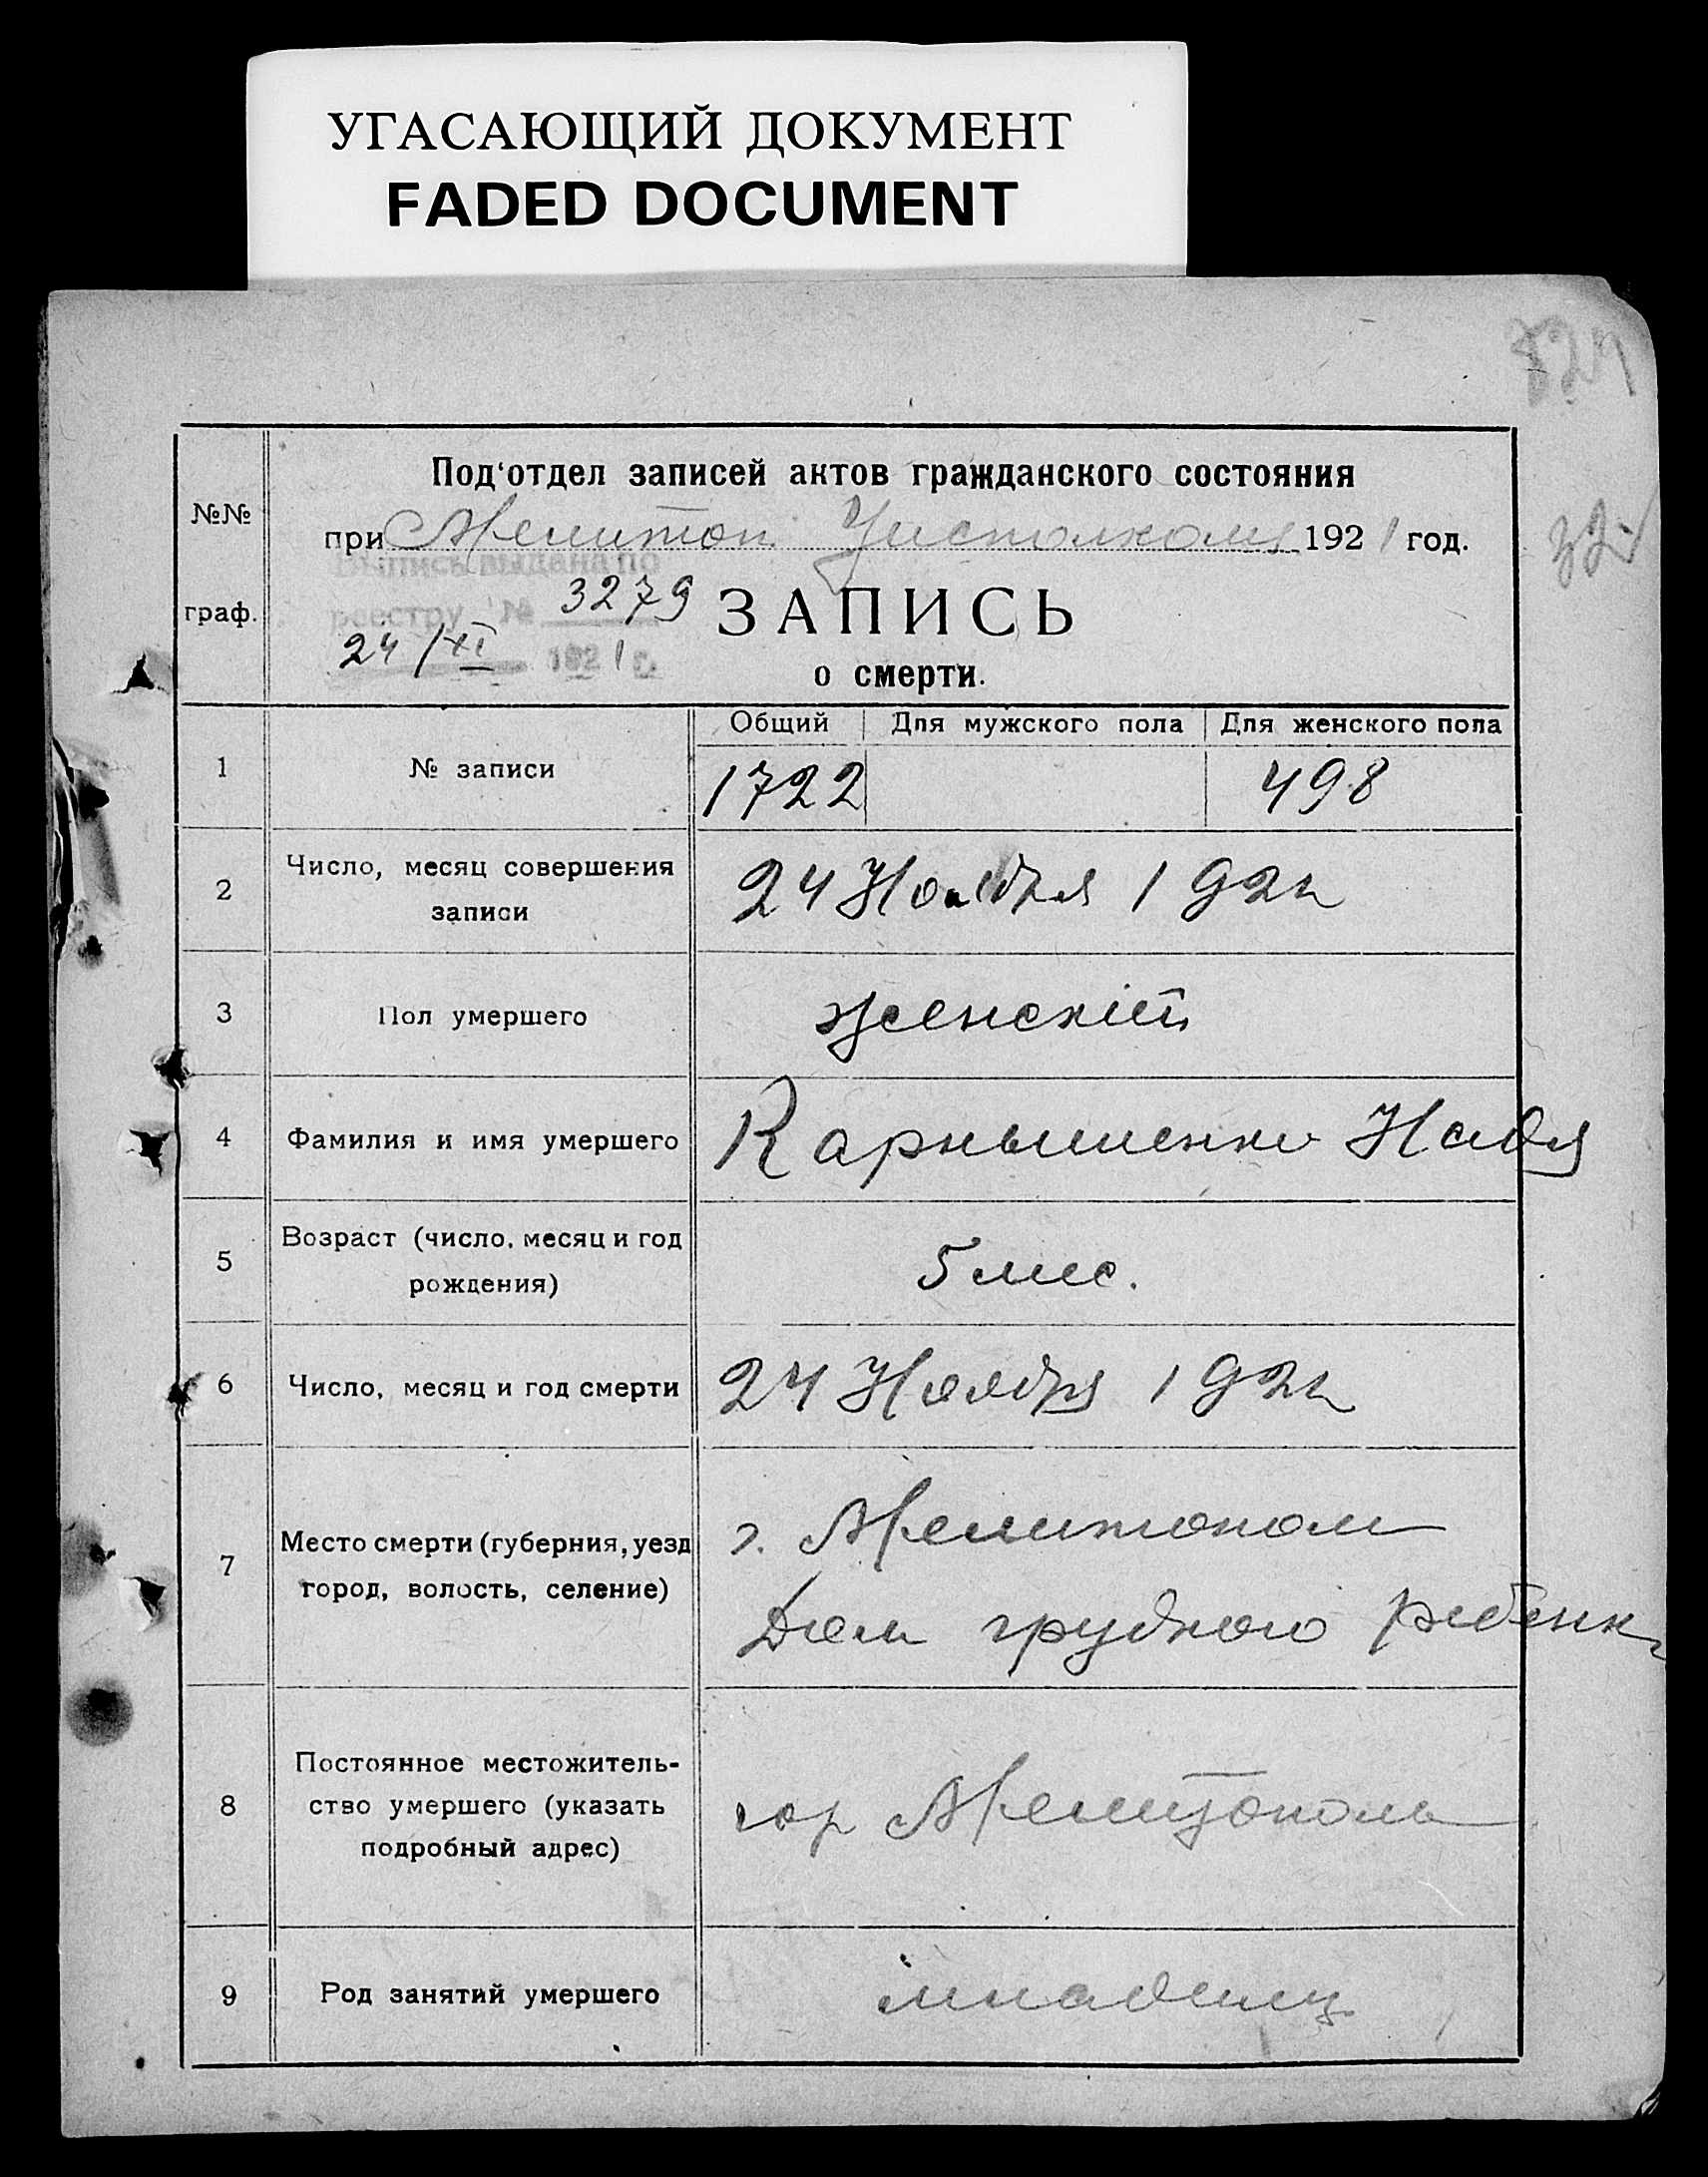 УГАСАЮЩИЙ ДОКУМЕНТ
FADED DOCUMENT
829
Под'отдел записей актов гражданского состояния
№№ граф.
при Мелитоп. Уисполкоме 1921 год.
Выпись выдана по
реестру № 3279
24/XI 1921 г.
ЗАПИСЬ
о смерти.
Общий Для мужского пола Для женского пола
1 № записи 1722 498
2 Число, месяц совершения
записи
24 Ноября 1921
3 Пол умершего женскій
4 Фамилия и имя умершего Карнышенко Надя
5 Возраст (число, месяц и год
рождения)
5 мес.
6 Число, месяц и год смерти 24 Ноября 1921
7 Место смерти (губерния, уезд
город, волость, селение)
г. Мелитополь
Дом грудного ребенка
8 Постоянное местожитель-
ство умершего (указать
подробный адрес)
гор Мелитополь
9 Род занятий умершего младенец